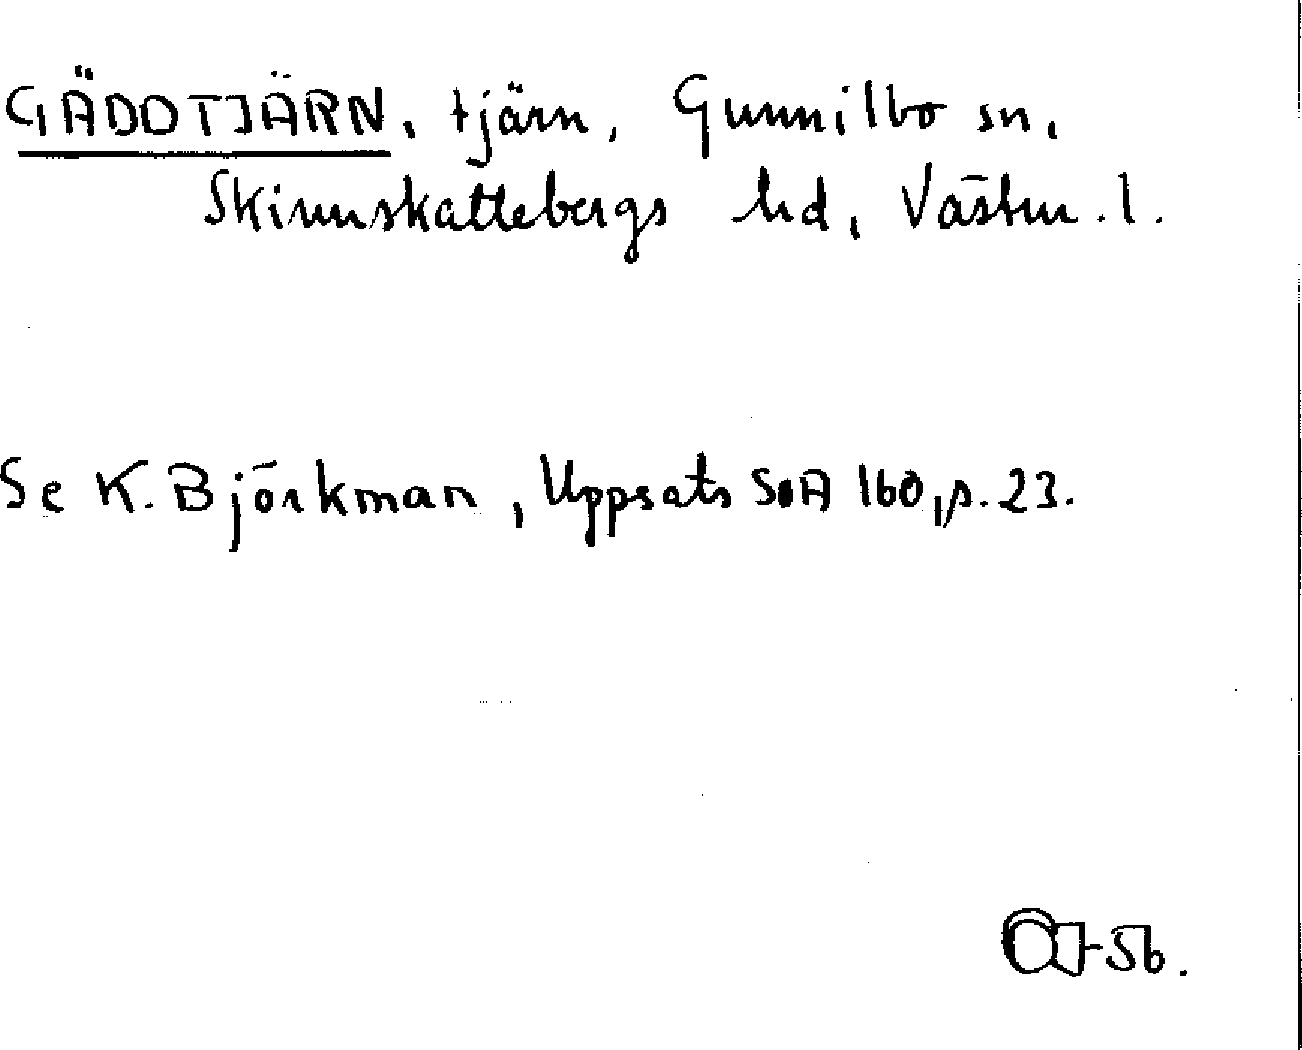 GÄDDTJÄRN, tjärn, Gunnilbo sn,
Skinnskattebergs hd, Västm. l.
Se K. Björkman, Uppsats SOA 160, s. 23.
-56.